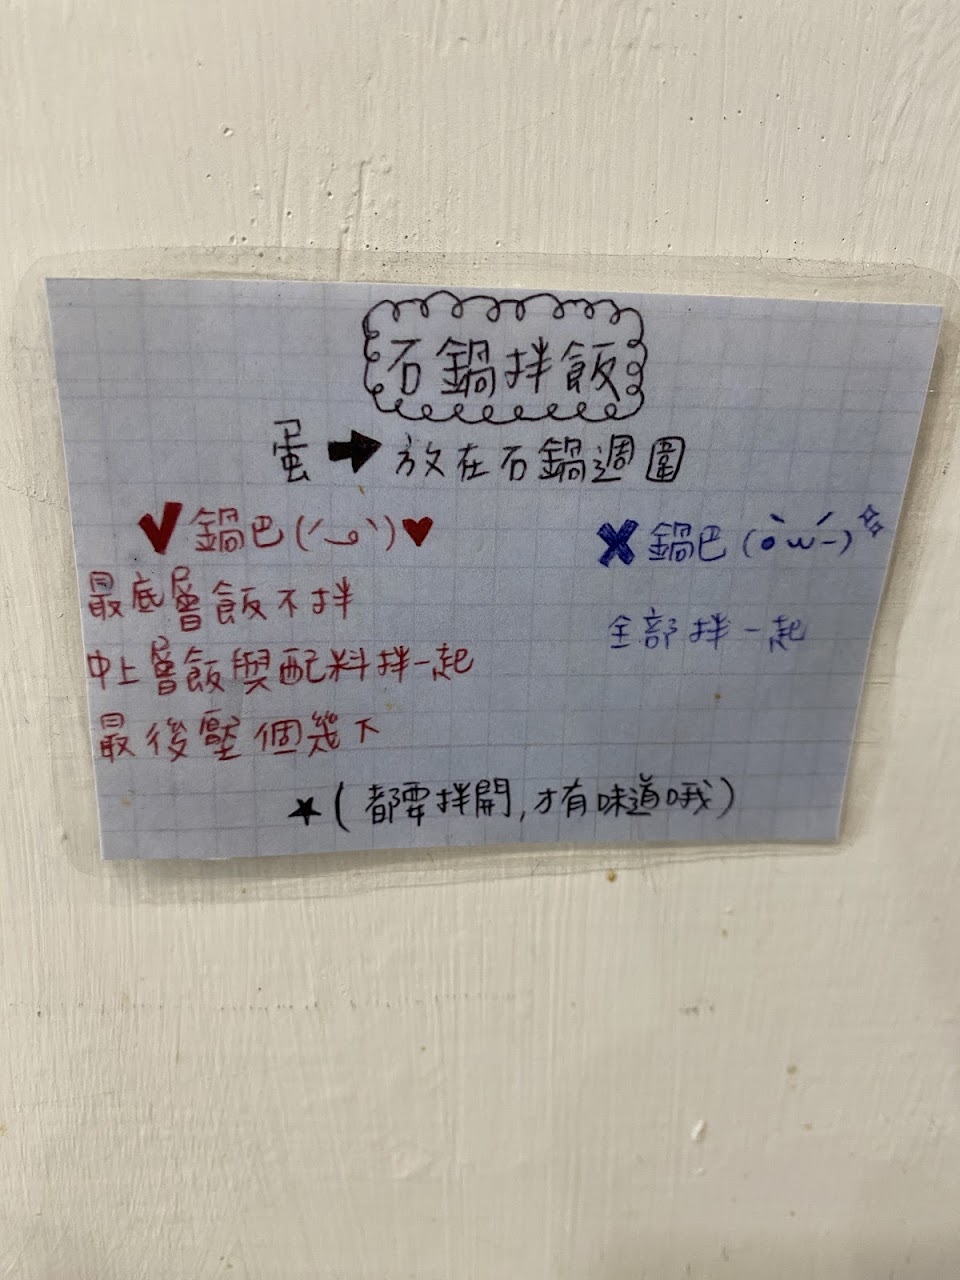 石鍋拌飯
蛋➡放在石鍋週圍
✔鍋巴(´ڡ`)♥
最底層飯不拌
中上層飯與配料拌一起
最後壓個幾下
✖鍋巴(òωó)✧
全部拌一起
★(都要拌開,才有味道哦)